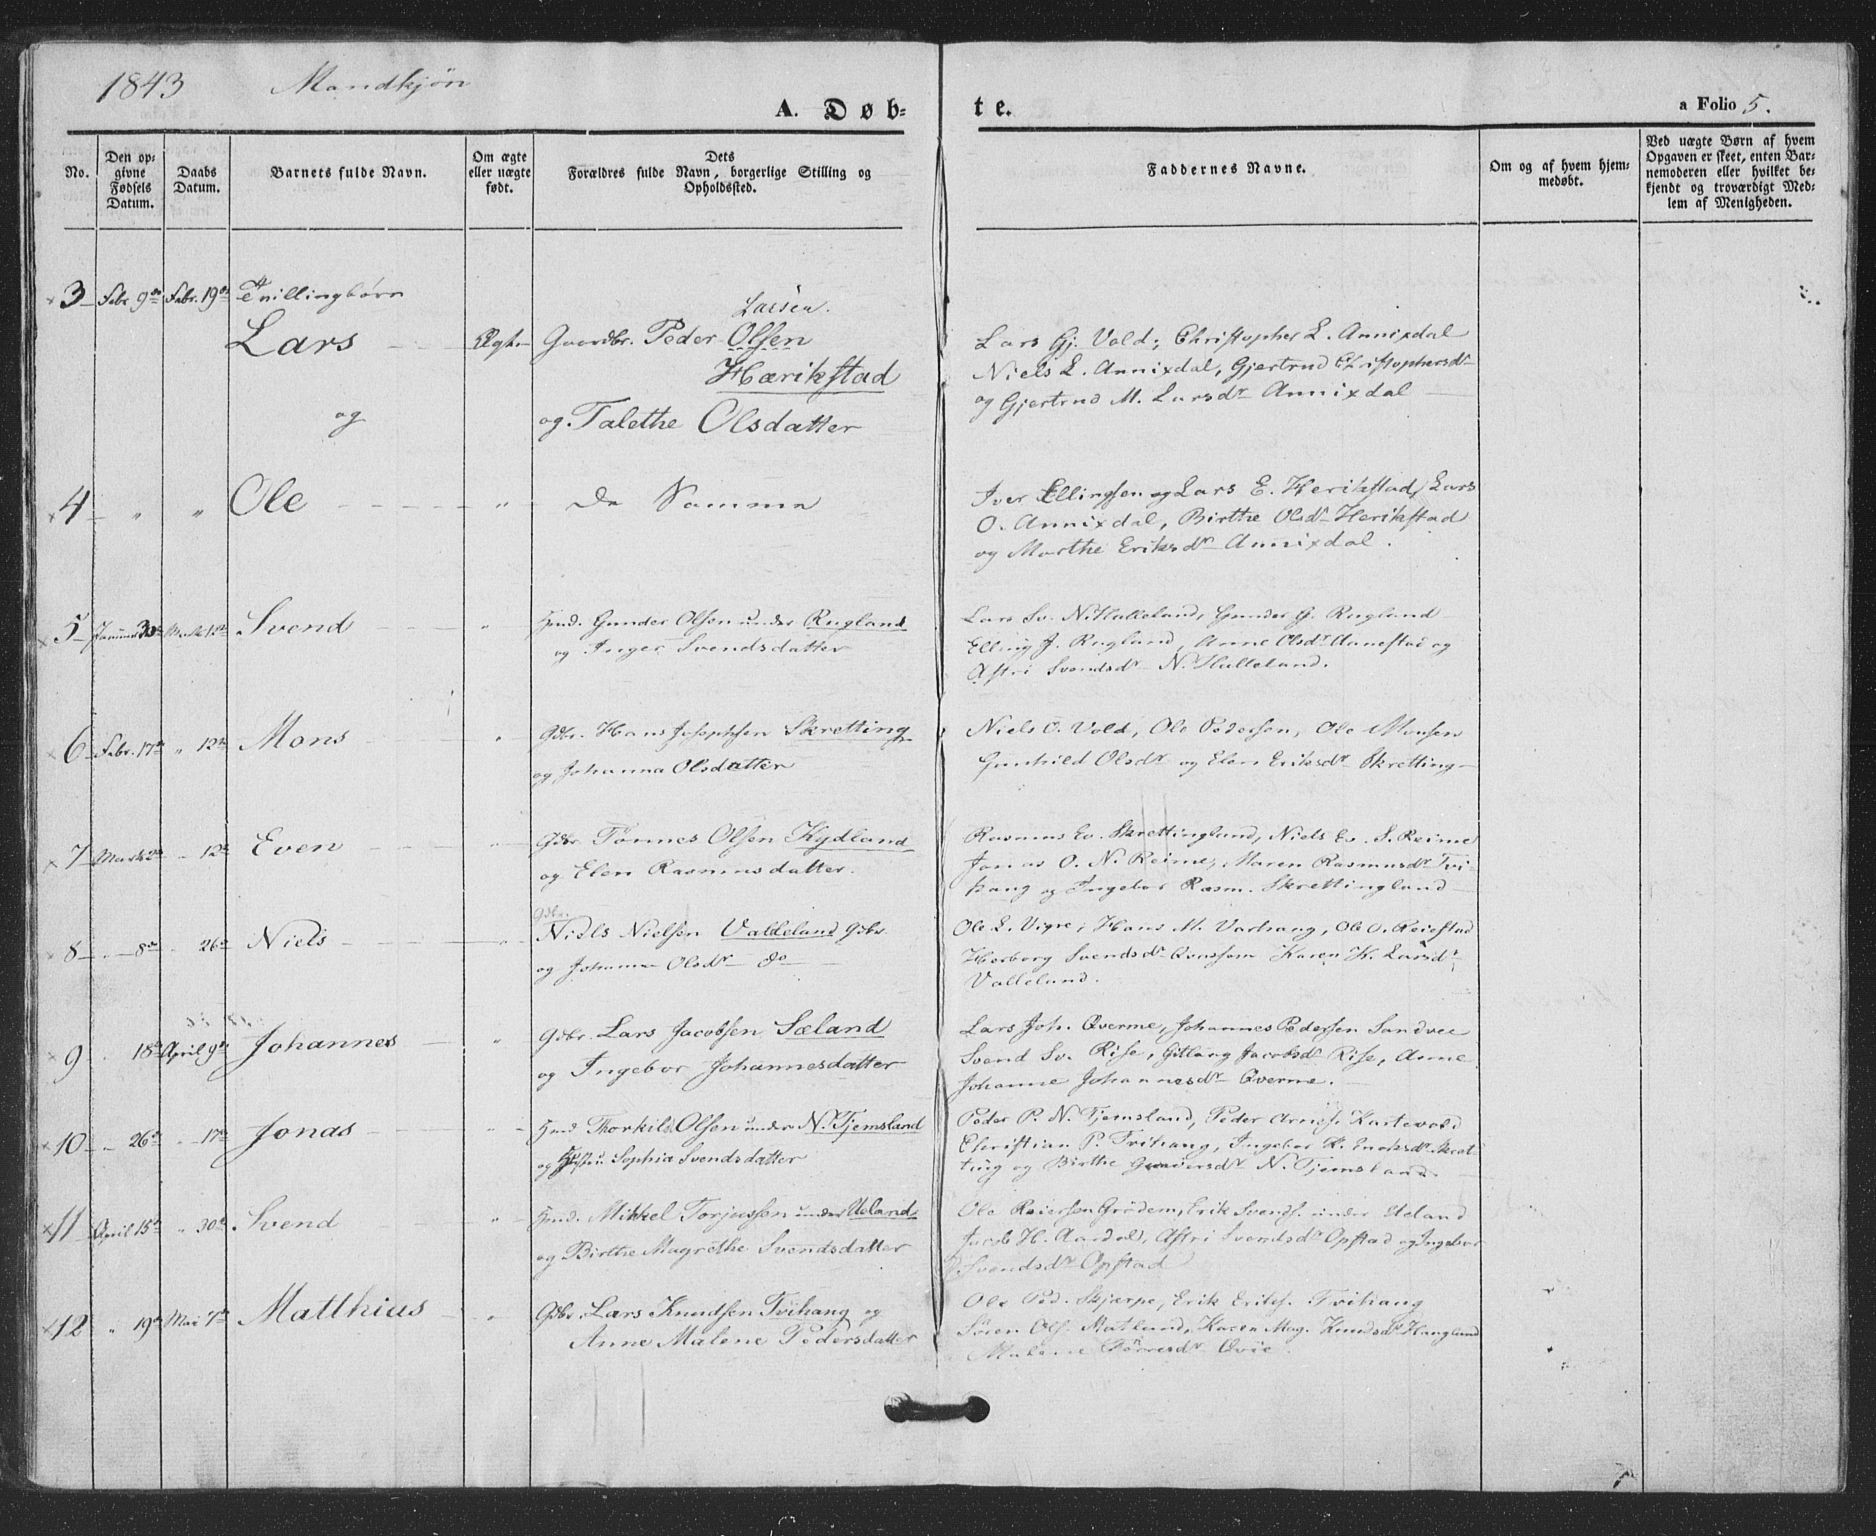 1843 Mandkjøn
A. Døb-
te.
a Folio 5.
No.
Den op-
givne
Fødsels
Datum.
Daabs
Datum.
Barnets fulde Navn.
Om ægte
eller uægte
født.
Dets
Forældres fulde Navn, borgerlige Stilling og
Opholdssted.
Faddernes Navne.
Om og af hvem hjem-
medøbt.
Ved uægte Børn af hvem
Opgaven er skeet, enten Bar-
nemoderen eller hvilket be-
kjendt og troværdigt Med-
lem af Menigheden.
3 Febr. 9de Febr. 19de Tvillingbørn
Lassen.
Lars Ægte Gaardbr. Peder Olsen
Hærikstad
og
og Talethe Olsdatter
Lars Gj. Vold, Christopher L. Annixdal
Niels L. Annixdal, Gjertrud Christophersdr
og Gjertrud M. Larsdr Annixdal
4 " " Ole " De Samme
Iver Ellingsen og Lars E. Herikstad, Lars
O. Annixdal, Birthe Olsdr Herikstad
og Marthe Eriksdr Annixdal.
5 Januar 30 Marts 12te Svend " Hmd. Gunder Olsen under Rugland
og Inger Svendsdatter
Lars Sv. N. Hulleland, Gunder G. Rugland
Elling J. Rugland, Anne Olsdr Aunestad og
Astri Svendsdr N. Hulleland.
6 Febr. 17de " 12te Mons " Gdbr. Hans Josephsen Skretting
og Johanna Olsdatter
Niels O. Vold, Ole Pedersen, Ole Monsen
Gunhild Olsdr og Elen Eriksdr Skretting
7 Marts 2de " 12te Even " Gdbr Tønnes Olsen Kydland
og Elen Rasmusdatter.
Rasmus Ev. Skrettingland, Niels Ev. S. Reime
Jonas O. N. Reime, Maren Rasmusdr Tvi-
hang og Ingebor Rasm. Skrettingland
8 " 8de " 26de Niels " Gdbr. Niels Nielsen Valdeland Gdbr
og Johanna Olsdr do
Ole L. Vigre, Hans M. Varhaug, Ole O. Reiestad
Herborg Svendsdr Karen K. Larsdr
Valleland.
9 " 18de April 9de Johannes " Gdbr. Lars Jacobsen Sæland
og Ingebor Johannesdatter
Lars Joh. Qverme, Johannes Pedersen Sandvee
Svend Sv. Rise, Gitlaug Jacobsdr Rise, Anne
Johanne Johannesdr Qverme.
10 " 26de " 17de Jonas " Hmd Thorkild Olsen under N. Tjemsland
og Sophia Svendsdatter
Peder P. N. Tjemsland, Peder Arnes.
Christian P. Tvihang, Ingebor Skret-
ting og Birthe Gundersdr N. Tjemsland
11 April 15de " 30de Svend " Hmd. Mikkel Torjussen under Ueland
og Birthe Magrethe Svendsdatter
Ole Reiersen Grødem, Erik Svends. under Ueland
Jacob H. Aardal, Astri Svendsdr Opstad og Ingebor
Svendsdr Opstad
12 " 19de Mai 7de Matthius " Gdbr. Lars Knudsen Tvihang og
Anne Malene Pedersdatter
Ole Ped. Skjærpe, Erik Eriks. Tvihang
Sören Ols. Matland, Karen Mag. Knudsdr Haugland
Malene Tørresdr Qvie.